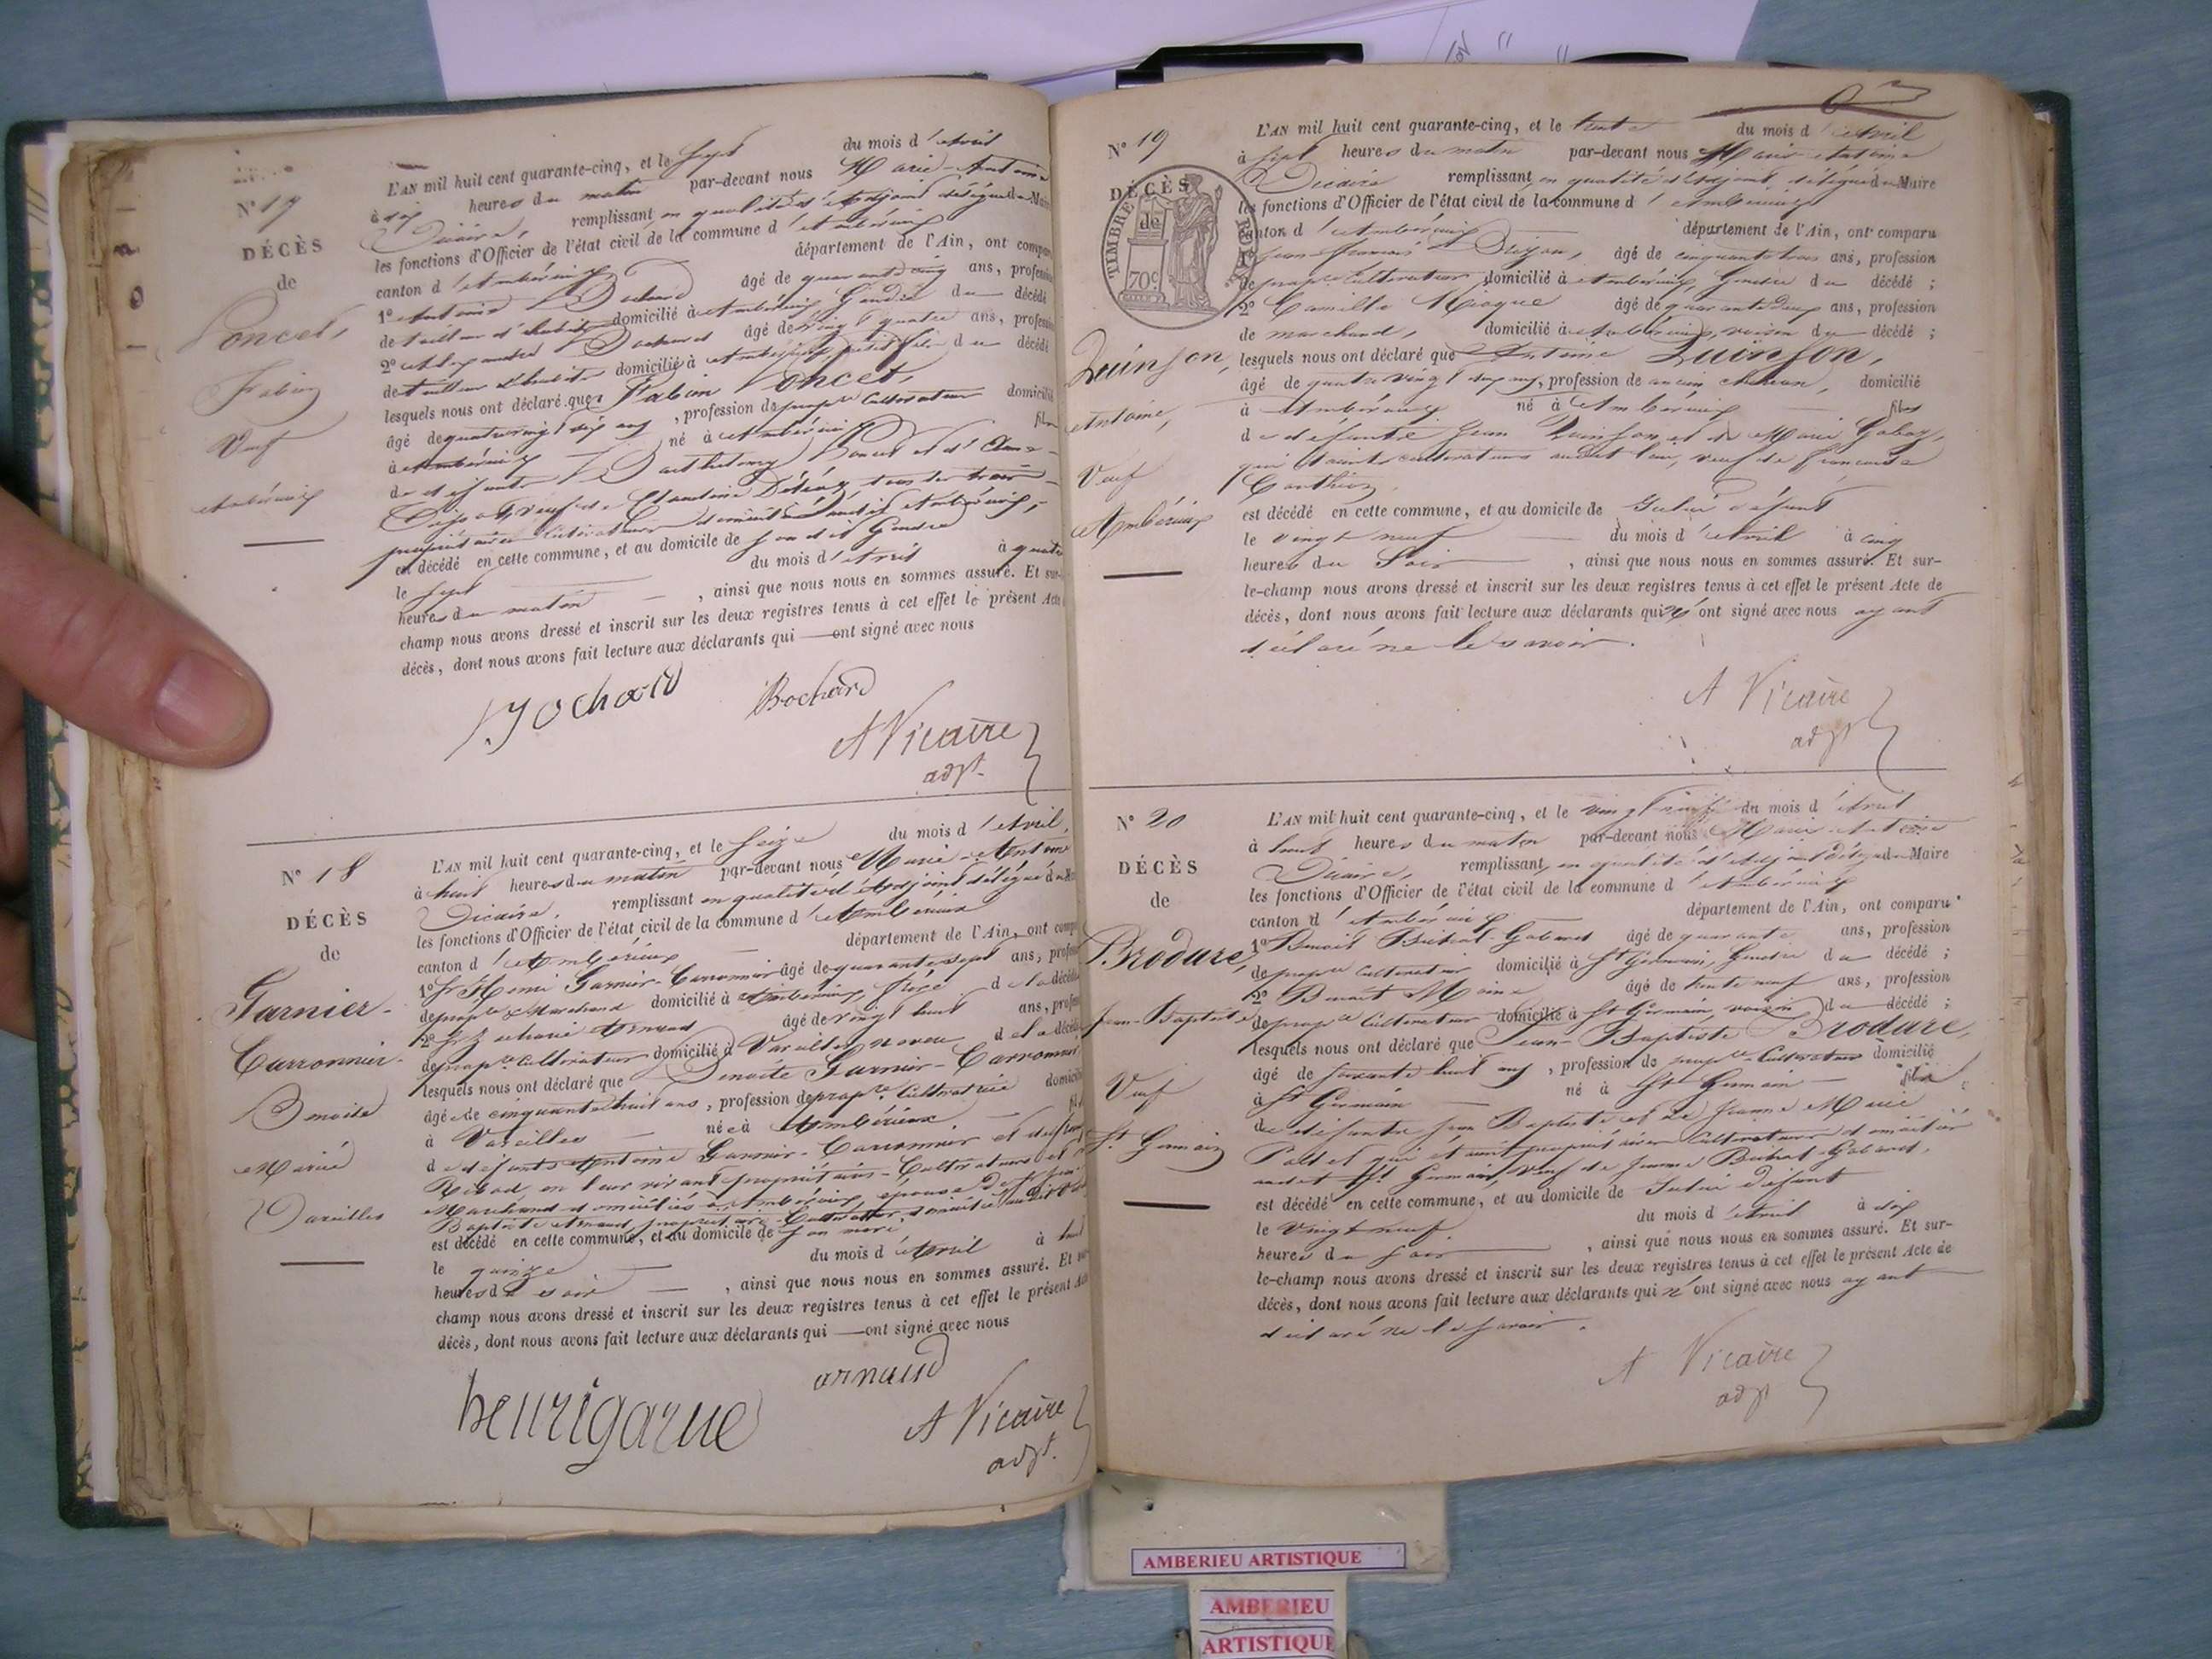 N° 17
DÉCÈS
de
Poncet,
Fabien
Veuf
Ambérieux
L'AN mil huit cent quarante-cinq, et le sept du mois d'Avril
à dix heures du matin par-devant nous Marie-Antoine
Vicaire, remplissant en qualité d'Adjoint délégué du Maire
les fonctions d'Officier de l'état civil de la commune d'Ambérieux
canton d'Ambérieux département de l'Ain, ont comparu
1° Antoine Bochard âgé de quarante cinq ans, profession
de tailleur d'habits domicilié à Ambérieux, Gendre du décédé
2° Alexandre Bochard âgé de vingt quatre ans, profession
de tailleur d'habits domicilié à Ambérieux, petit fils du décédé
lesquels nous ont déclaré que Fabien Poncet,
âgé de quatrevingt dix ans, profession de prop.re Cultivateur domicilié
à Ambérieux né à Ambérieux fils
de défunts Barthelemy Poncet et d'
veuf de Claudine
propriétaires Cultivateurs Ambérieux,
est décédé en cette commune, et au domicile de son dit Gendre
le sept du mois d'Avril à quatre
heures du matin — , ainsi que nous nous en sommes assuré. Et sur-
champ nous avons dressé et inscrit sur les deux registres tenus à cet effet le présent Acte
décès, dont nous avons fait lecture aux déclarants qui — ont signé avec nous
Bochard Bochard
A Vicaire
adjt.
N° 18
DÉCÈS
de
Garnier-
Carronnier-
Benoite
Mariée
Vareilles
L'AN mil huit cent quarante-cinq, et le seize du mois d'Avril,
à huit heures du matin par-devant nous Marie-Antoine
Vicaire, remplissant en qualité d'Adjoint délégué du
les fonctions d'Officier de l'état civil de la commune d'Ambérieux
canton d'Ambérieux département de l'Ain, ont comp
1° Henri Garnier-Carronnier âgé de quarante sept ans, profes
de prop.re & Marchand domicilié à Ambérieux, frère de la décédée
2° Arnaud âgé de vingt huit ans, profes
de prop.re Cultivateur domicilié à Vareilles, neveu de la décédée
lesquels nous ont déclaré que Benoite Garnier-Carronnier
âgée de cinquante huit ans, profession de prop.re Cultivatrice domicil
à Vareilles — née à Ambérieux —
de défunts Antoine Garnier-Carronnier et
en leur vivant propriétaires-Cultivateurs et
Marchand domiciliés à Ambérieux, épouse de
Baptiste Arnaud, propriétaire-Cultivateur, domicilié
est décédé en cette commune, et au domicile de son mari
le quinze du mois d'Avril à huit
heures du soir — , ainsi que nous nous en sommes assuré. Et sur
champ nous avons dressé et inscrit sur les deux registres tenus à cet effet le présent Acte
décès, dont nous avons fait lecture aux déclarants qui — ont signé avec nous
henrigarne arnaud
A Vicaire
adjt.
N° 19
DÉCÈS
de
TIMBRE
70c
Quinson,
Antoine,
Veuf
Ambérieux
L'AN mil huit cent quarante-cinq, et le trente du mois d'Avril
à sept heures du matin par-devant nous Marie-Antoine
Vicaire remplissant, en qualité d'Adjoint, délégué du Maire
les fonctions d'Officier de l'état civil de la commune d'Ambérieux
canton d'Ambérieux département de l'Ain, ont comparu
1° Jean-François âgé de cinquante trois ans, profession
de prop.re Cultivateur domicilié à Ambérieux, Gendre du décédé ;
2° Camille âgé de quarante deux ans, profession
de marchand, domicilié à Ambérieux, voisin du décédé ;
lesquels nous ont déclaré que Antoine Quinson,
âgé de quatrevingt dix ans, profession de ancien , domicilié
à Ambérieux né à Ambérieux — fils
de défunts Jean Quinson et de Marie Gaboz,
qui étaient cultivateurs audit lieu, veuf de Françoise
est décédé en cette commune, et au domicile de Gelui défunt
le vingt neuf — du mois d'Avril à cinq
heures du Soir , ainsi que nous nous en sommes assuré. Et sur-
le-champ nous avons dressé et inscrit sur les deux registres tenus à cet effet le présent Acte de
décès, dont nous avons fait lecture aux déclarants qui n'ont signé avec nous ayant
déclaré ne le savoir.
A Vicaire
adjt
N° 20
DÉCÈS
de
Brodure,
Jean-Baptiste
Veuf
St Germain
L'AN mil huit cent quarante-cinq, et le du mois d'Avril
à huit heures du matin par-devant nous Marie-Antoine
Vicaire, remplissant, en qualité d'Adjoint délégué du Maire
les fonctions d'Officier de l'état civil de la commune d'Ambérieux
canton d'Ambérieux département de l'Ain, ont comparu
1° Benoit âgé de quarante ans, profession
de prop.re Cultivateur domicilié à St Germain, Gendre du décédé ;
2° Benoit Moine âgé de trente neuf ans, profession
de prop.re Cultivateur domicilié à St Germain, voisin du décédé ;
lesquels nous ont déclaré que Jean-Baptiste Brodure,
âgé de soixante huit ans, profession de prop.re Cultivateur domicilié
à St Germain — né à St Germain — fils
de défunts Jean Baptiste et de Jeanne Marie
qui étaient propriétaires Cultivateurs domiciliés
audit St Germain, veuf de Jeanne
est décédé en cette commune, et au domicile de Celui défunt
le vingt neuf du mois d'Avril à dix
heures du soir , ainsi que nous nous en sommes assuré. Et sur-
le-champ nous avons dressé et inscrit sur les deux registres tenus à cet effet le présent Acte de
décès, dont nous avons fait lecture aux déclarants qui n'ont signé avec nous ayant
déclaré ne le savoir.
A Vicaire
adjt
AMBERIEU ARTISTIQUE
AMBERIEU
ARTISTIQUE